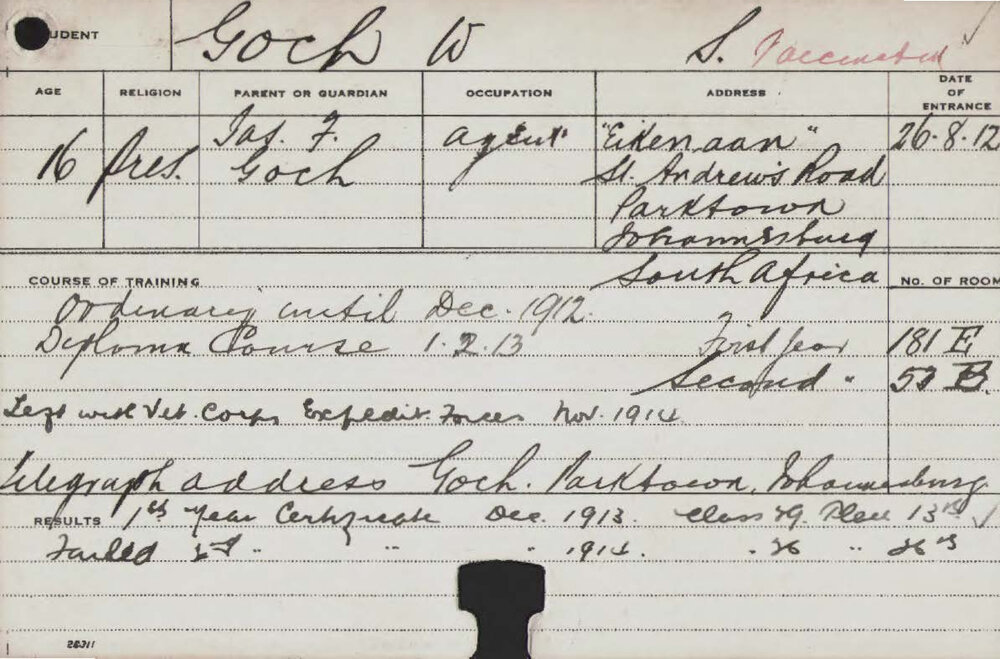 STUDENT Goch W S. Vaccinated
AGE RELIGION PARENT OR GUARDIAN OCCUPATION ADDRESS DATE OF ENTRANCE
16 Pres. Jas. F. Goch agent "Eikenaan" 26.8.12
St. Andrew's Road
Parktown
Johannesburg
South Africa
COURSE OF TRAINING No. OF ROOM
Ordinary until Dec. 1912.
Diploma Course 1.2.13 First year 181 E
Second " 53 B.
Left with Vet. Corps Expedit. Forces Nov. 1914
Telegraph address Goch. Parktown, Johannesburg
RESULTS 1st Year Certificate Dec. 1913. Class 29. Place 13th
Failed 2nd " " " 1914. " 26 " 26th
28311